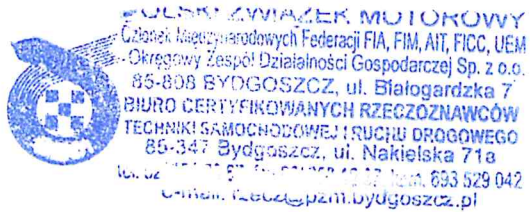 POLSKI ZWIĄZEK MOTOROWY
Członek Międzynarodowych Federacji FIA, FIM, AIT, FICC, UEM
- Okręgowy Zespół Działalności Gospodarczej Sp. z o.o.
85-808 BYDGOSZCZ, ul. Białogardzka 7
BIURO CERTYFIKOWANYCH RZECZOZNAWCÓW
TECHNIKI SAMOCHODOWEJ I RUCHU DROGOWEGO
85-347 Bydgoszcz, ul. Nakielska 71a
tel. 693 529 042
e-mail: rzecz@pzm.bydgoszcz.pl